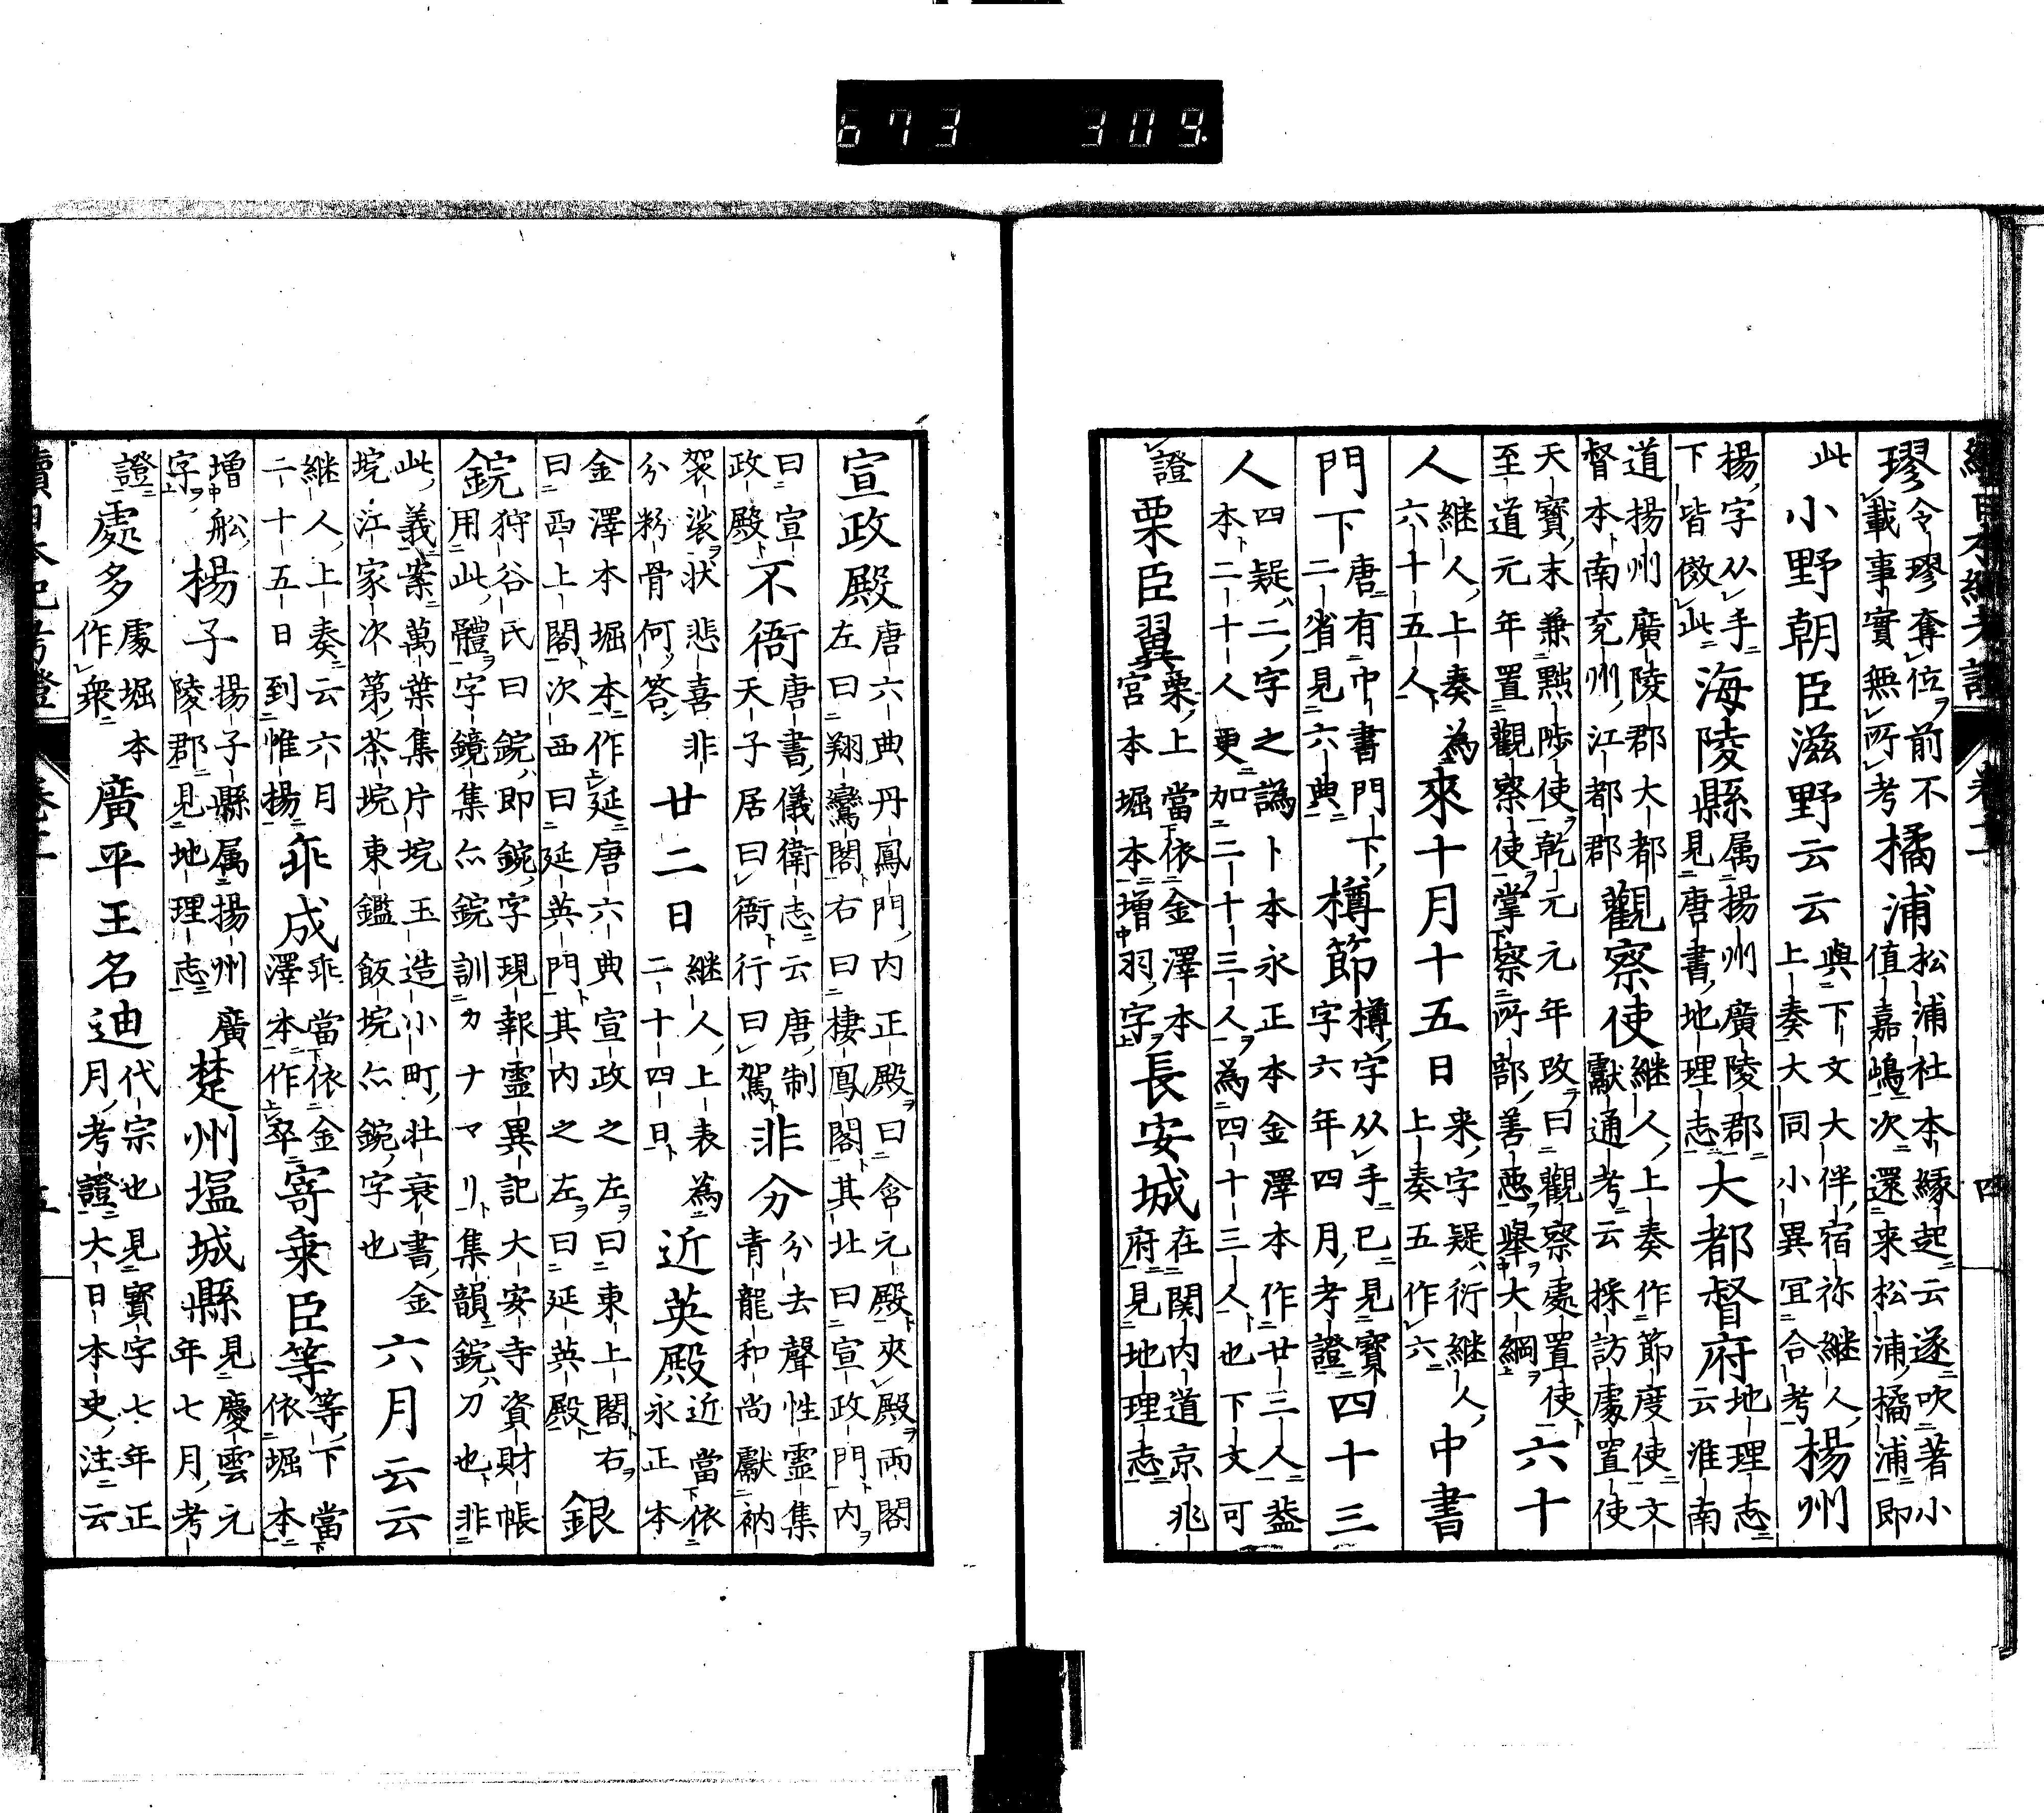 續日本紀考證 卷十二 四
璆令璆奪位前不載事實無所考橘浦松浦社本縁起云遂吹著小値嘉嶋次還来松浦橘浦即
此小野朝臣滋野云云與下文大伴宿祢継人上奏大同小異冝合考楊州
楊字从手下皆倣此海陵縣属揚州廣陵郡見唐書地理志大都督府地理志云淮南
道揚州廣陵郡大都督本南兖州江都郡觀察使継人上奏作節度使文獻通考云採訪處置使
天寳末兼黜陟使乾元元年改曰觀察處置使至道元年置觀察使掌察所部善悪舉大綱六十
人継人上奏為六十五人來十月十五日来字疑衍継人上奏五作六中書
門下唐有中書門下二省見六典樽節樽字从手已見寳字六年四月考證四十三
人四疑二字之譌卜本永正本金澤本作廿三人葢本二十人更加二十三人為四十三人也下文可
證栗臣翼栗上當依金澤本宮本堀本増羽字長安城在関内道京兆府見地理志
宣政殿唐六典丹鳳門内正殿ヲ曰含元殿ト夾殿ヲ兩閣左曰翔鸞閣右曰棲鳳閣ト其北曰宣政門ト内ヲ
曰宣政殿ト不衙唐書儀衛志云唐制天子居曰衙ト行曰駕ト非分分去聲性霊集青龍和尚獻衲
袈裟ヲ状悲喜非分粉骨何ッ答ン廿二日継人上表為二十四日ト近英殿近當依永正本
金澤本堀本作延唐六典宣政之左ヲ曰東上閣ト右ヲ曰西上閣ト次西曰延英門ト其内之左ヲ曰延英殿ト銀
鋺狩谷氏曰鋺ハ即鋺字現報霊異記大安寺資財帳用此體ヲ字鏡集亦鋺訓カナマリト集韻鋺ハ刀也ト非
此義案萬葉集片垸玉造小町壮衰書金垸江家次第茶垸東鑑飯垸亦鋺字也六月云云
継人上奏云六月二十五日到惟揚乖成乖當依金澤本作卒寄乗臣等等下當依堀本
増舩字ヲ楊子揚子縣属揚州廣陵郡見地理志楚州塩城縣見慶雲元年七月考
證處多處堀本作衆廣平王名迪代宗也見寳字七年正月考證大日本史注云